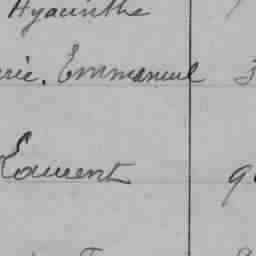 Hyacinthe
rie. Emmanuel 3
Laurent 9